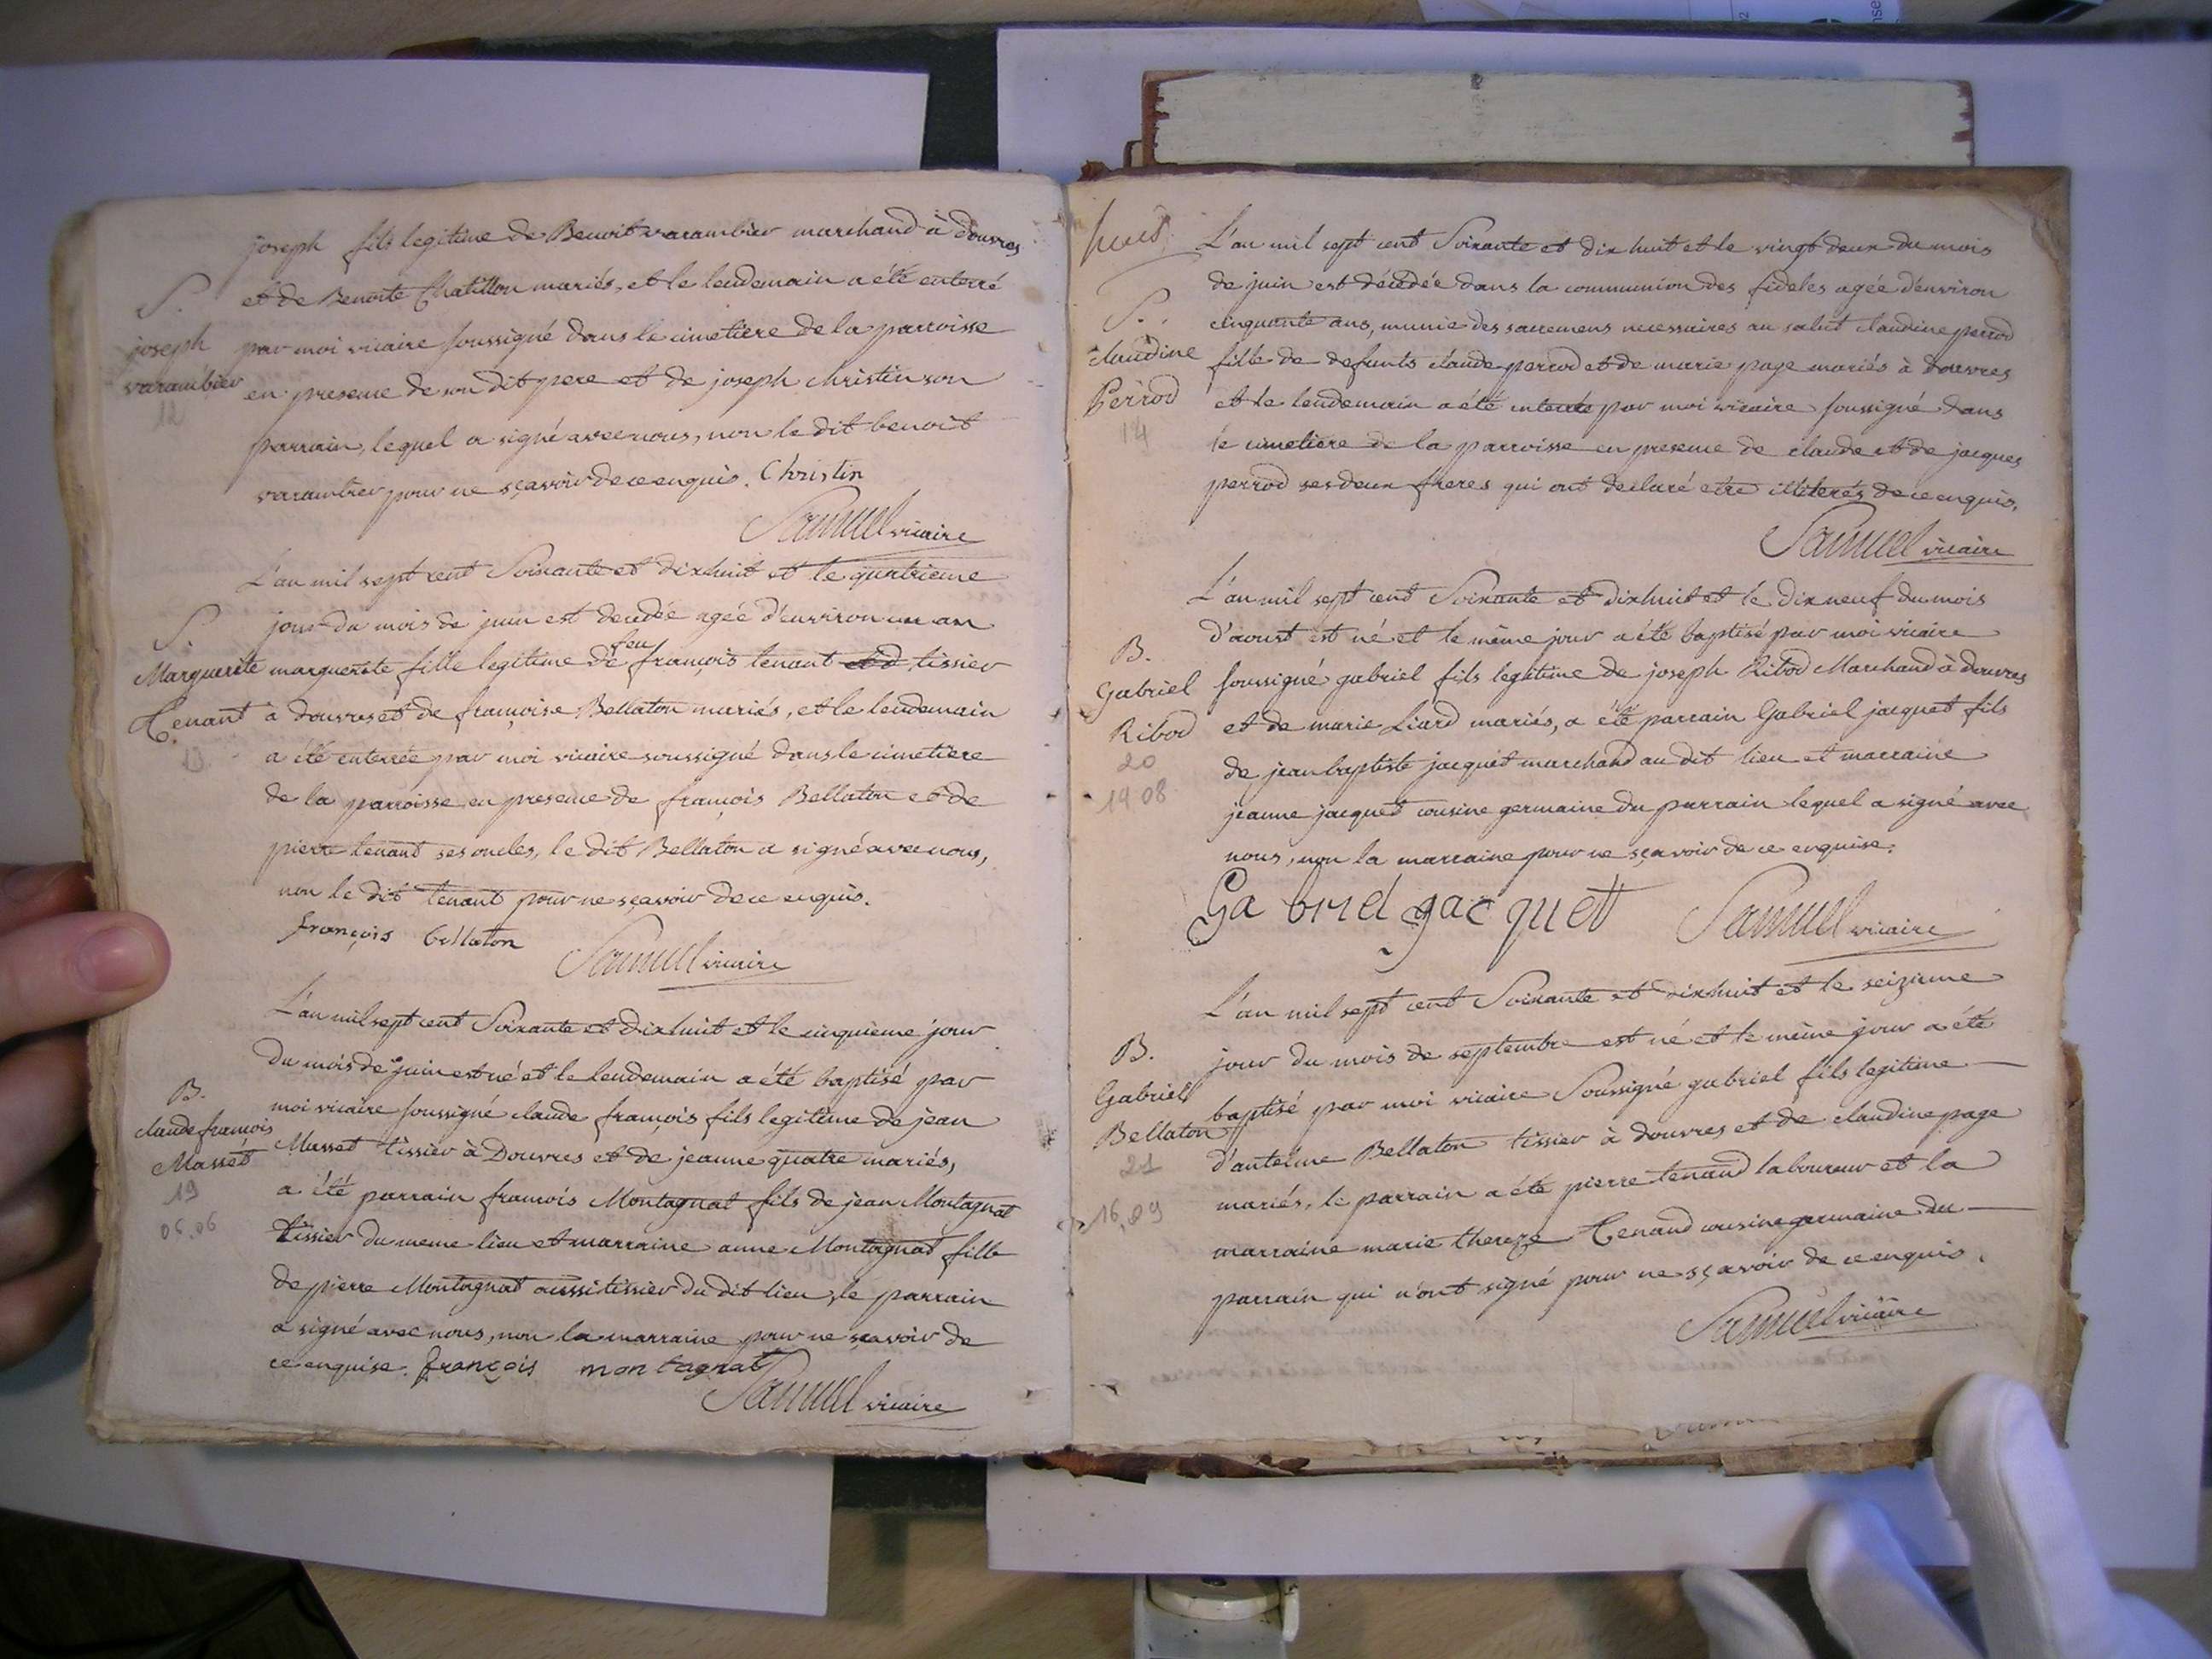 joseph fils legitime de Benoit varambier marchand à douvres
S.
et de Benoite Chatillon mariés, et le lendemain a été enterré
joseph
par moi vicaire soussigné dans le cimetiere de la parroisse
varambier
en presence de son dit pere et de joseph christin son
12
parrain, lequel a signé avec nous, non le dit benoit
varambier pour ne sçavoir de ce enquis. Christin
Samuel vicaire
L'an mil sept cent Soixante et dixhuit et le quatrieme
S.
jour du mois de juin est decedée agée d'environ un an
feu
Marguerite
marguerite fille legitime de françois tenant et d tissier
Tenant
à douvres et de françoise Bellaton mariés, et le lendemain
13
a été enterrée par moi vicaire soussigné dans le cimetiere
de la parroisse en presence de françois Bellaton et de
pierre tenant ses oncles, le dit Bellaton a signé avec nous,
non le dit tenant pour ne sçavoir de ce enquis.
françois bellaton
Samuel vicaire
L'an mil sept cent Soixante et dixhuit et le cinquieme jour
du mois de juin est né et le lendemain a été baptisé par
B.
moi vicaire soussigné claude françois fils legitime de jean
claude françois
Masset tissier à Douvres et de jeanne quatre mariés,
Masset
19
06.06
a été parrain françois Montagnat fils de jean Montagnat
tissier du meme lieu et marraine anne Montagnat fille
de pierre Montagnat aussi tissier du dit lieu, le parrain
a signé avec nous, non la marraine pour ne sçavoir de
ce enquise. françois montagnat
Samuel vicaire
huit
L'an mil sept cent Soixante et dix huit et le vingt deux du mois
de juin est décédée dans la communion des fideles agée d'environ
S.
cinquante ans, munie des sacremens necessaires au salut claudine perrod
claudine
fille de defunts claude perrod et de marie page mariés à douvres
Perrod
et le lendemain a été enterrée par moi vicaire soussigné dans
14
le cimetiere de la parroisse en presence de claude et de jacques
perrod ses deux freres qui ont declaré etre illiterés de ce enquis.
Samuel vicaire
L'an mil sept cent Soixante et dixhuit et le dix neuf du mois
d'aoust est né et le même jour a été baptisé par moi vicaire
B.
Gabriel
soussigné gabriel fils legitime de joseph Ribod Marchand à douvres
Ribod
et de marie Liard mariés, a été parrain Gabriel jacquet fils
20
de jean baptiste jacquet marchand au dit lieu et marraine
19 08
jeanne jacquet cousine germaine du parrain lequel a signé avec
nous, non la marraine pour ne sçavoir de ce enquise.
Gabriel jacquett Samuel vicaire
L'an mil sept cent Soixante et dixhuit et le seizieme
B.
jour du mois de septembre est né et le même jour a été
Gabriel
baptisé par moi vicaire Soussigné gabriel fils legitime
Bellaton
d'anteime Bellaton tissier à douvres et de claudine page
21
mariés, le parrain a été pierre tenand laboureur et la
16,09
marraine marie thereze Tenand cousine germaine du
parrain qui n'ont signé pour ne sçavoir de ce enquis.
Samuel vicaire